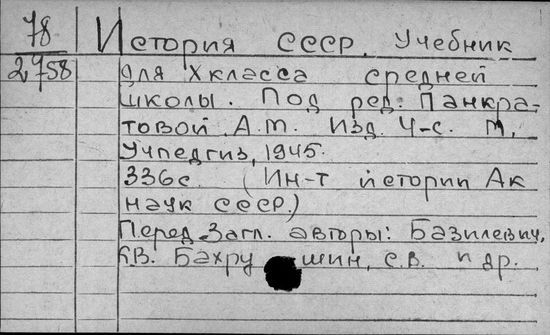 78
2958
История СССР. Учебник
для X класса средней
школы. Под ред: Панкра-
товой, А.М. Изд. 4-е. М.
Учпедгиз, 1945.
336с. (Ин-т истории Ак
наук СССР.)
Перед Загл. авторы: Базилевич,
К.В. Бахрушин, С.В. и др.